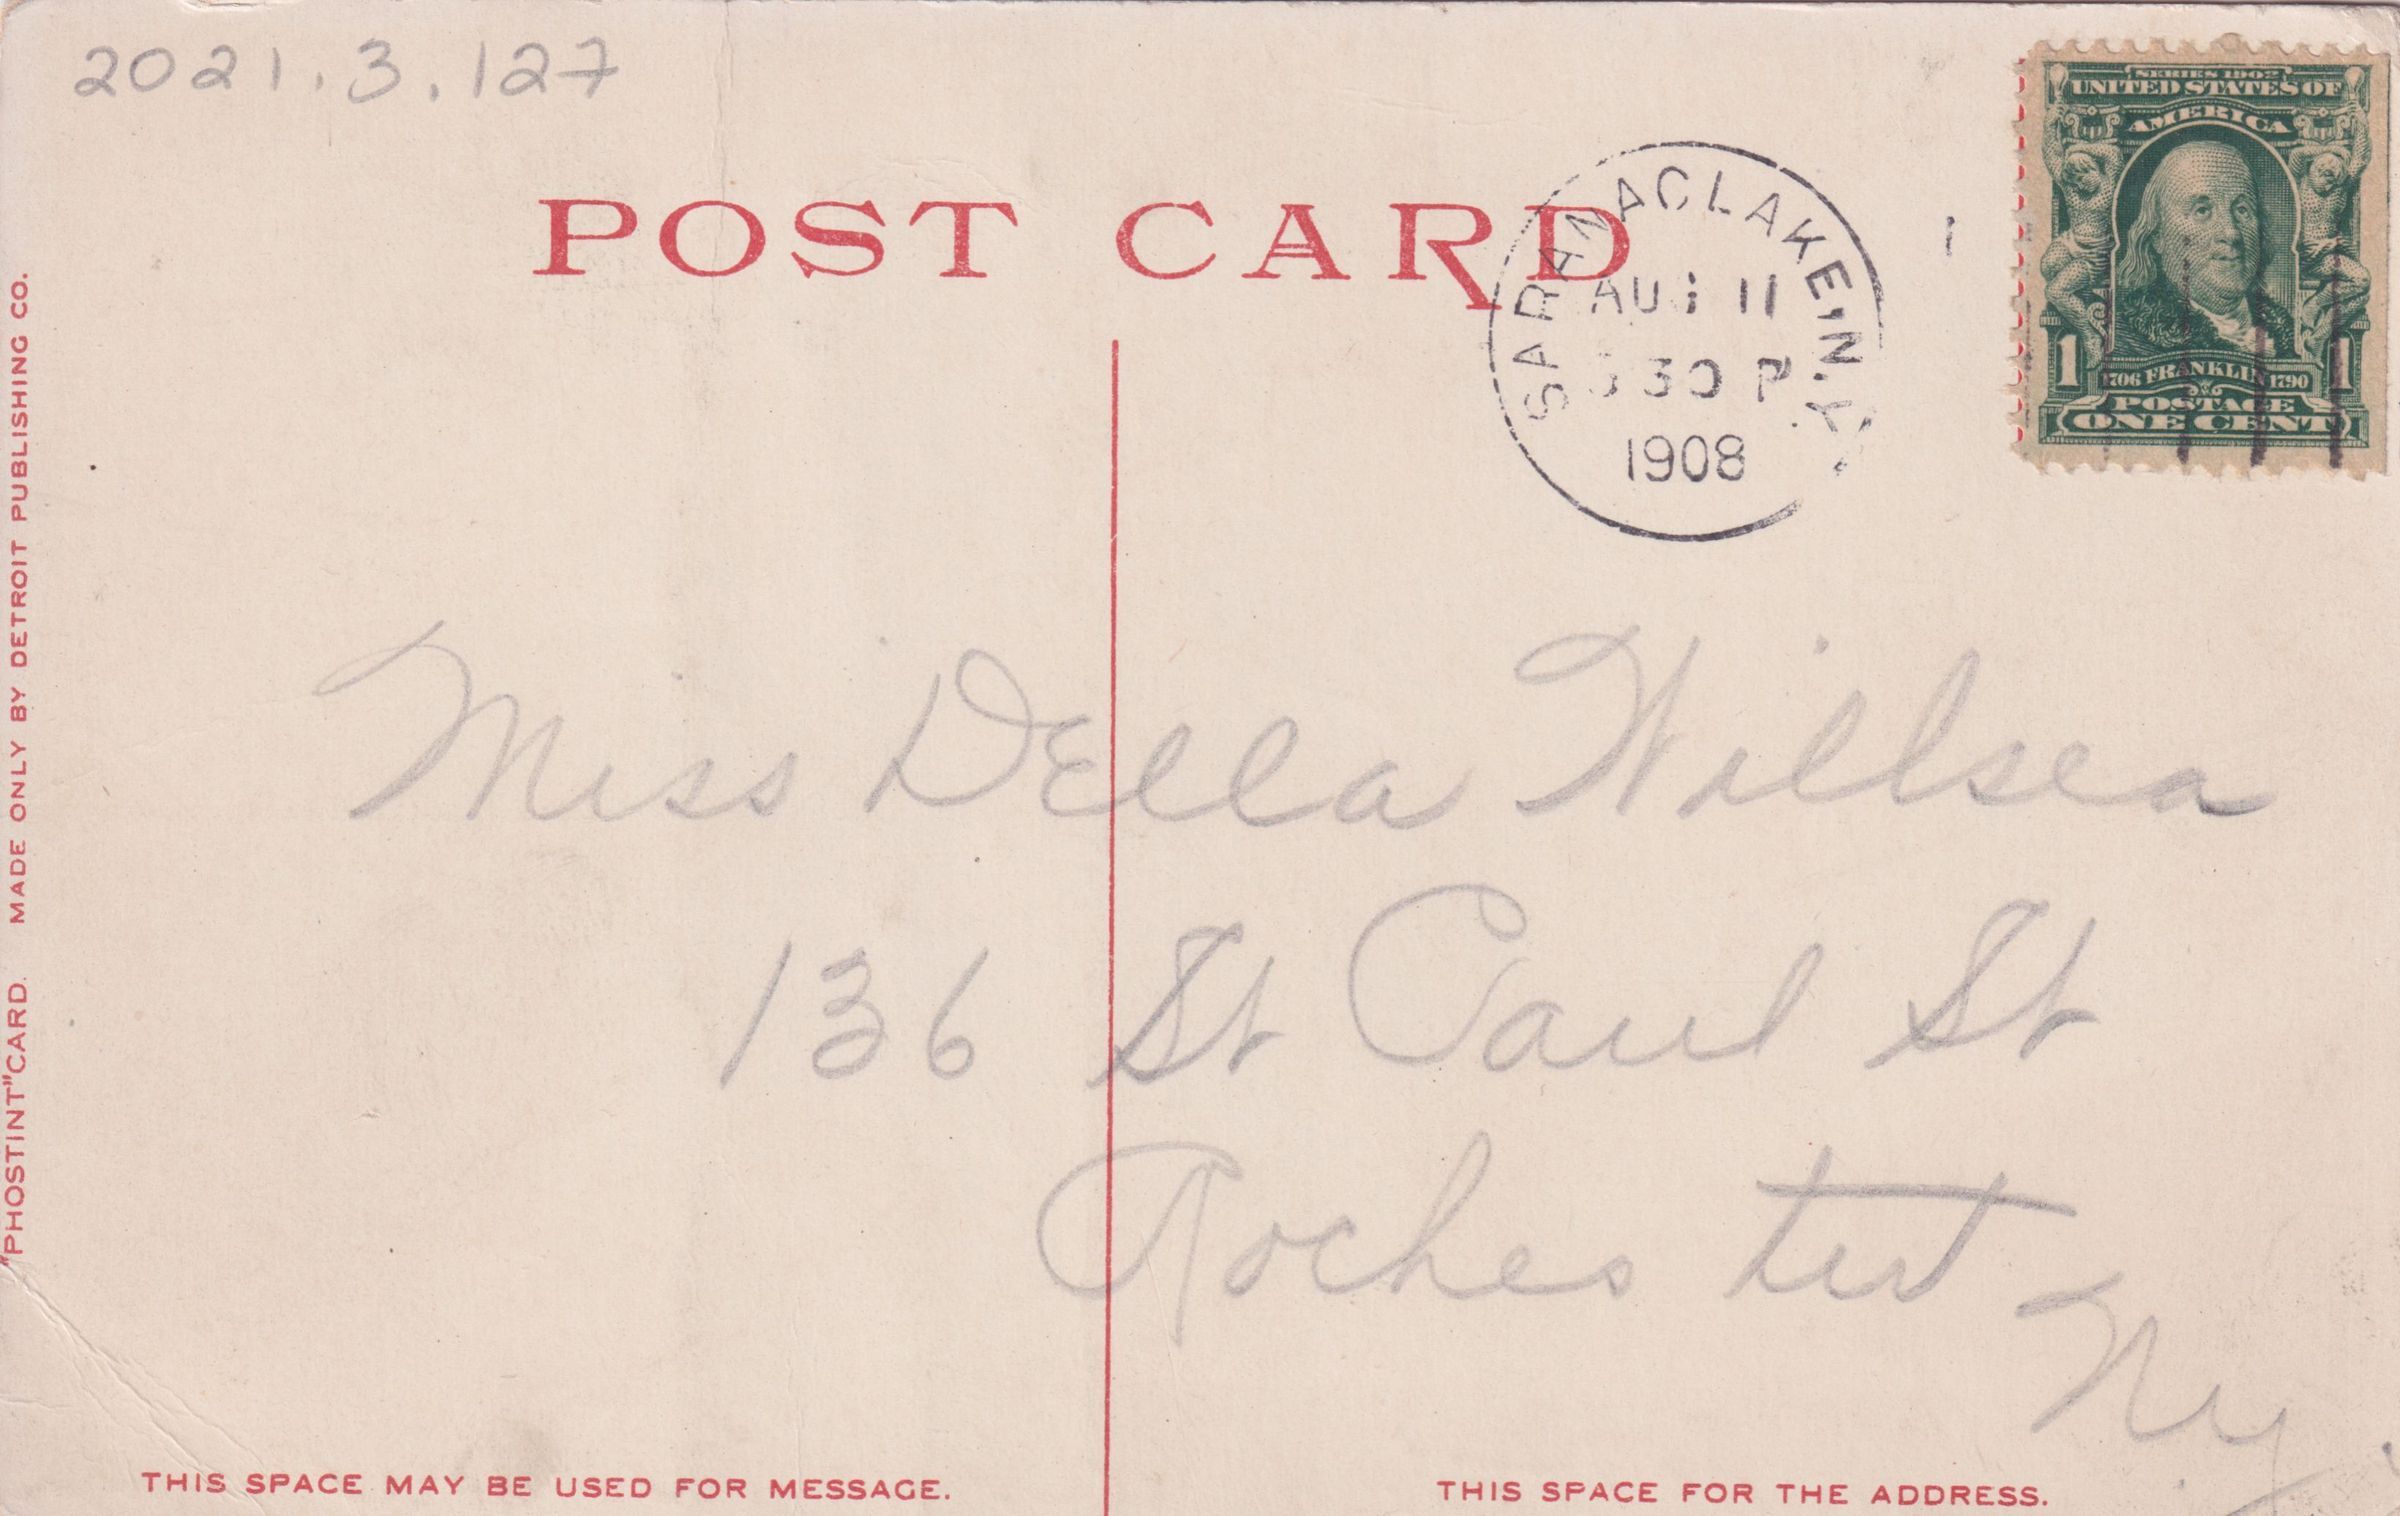 2021.3.127
POST CARD
SARANAC LAKE, N.Y.
AUG 11
30 P
1908
SERIES 1902
UNITED STATES OF
AMERICA
1 1706 FRANKLIN 1790 1
POSTAGE
ONE CENT
"PHOSTINT" CARD. MADE ONLY BY DETROIT PUBLISHING CO.
Miss Della Willsea
136 St Paul St
Rochester
Ny.
THIS SPACE MAY BE USED FOR MESSAGE.
THIS SPACE FOR THE ADDRESS.